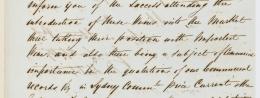 inform you of the success attending the
introduction of these Wines into the Market
thus taking their position with Imported
Wines and also there being a subject of
importance in the quotations of our Commercial
records by a Sydney Price Current the